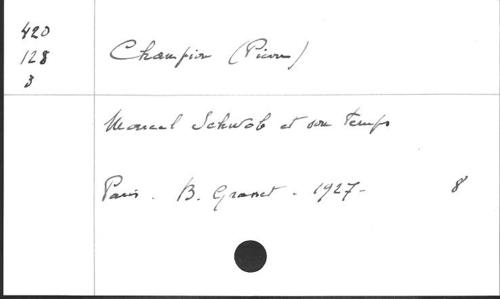 420
128
3
Champion (Pierre)
Marcel Schwob et son temps
Paris - B. Grasset - 1927 - 8